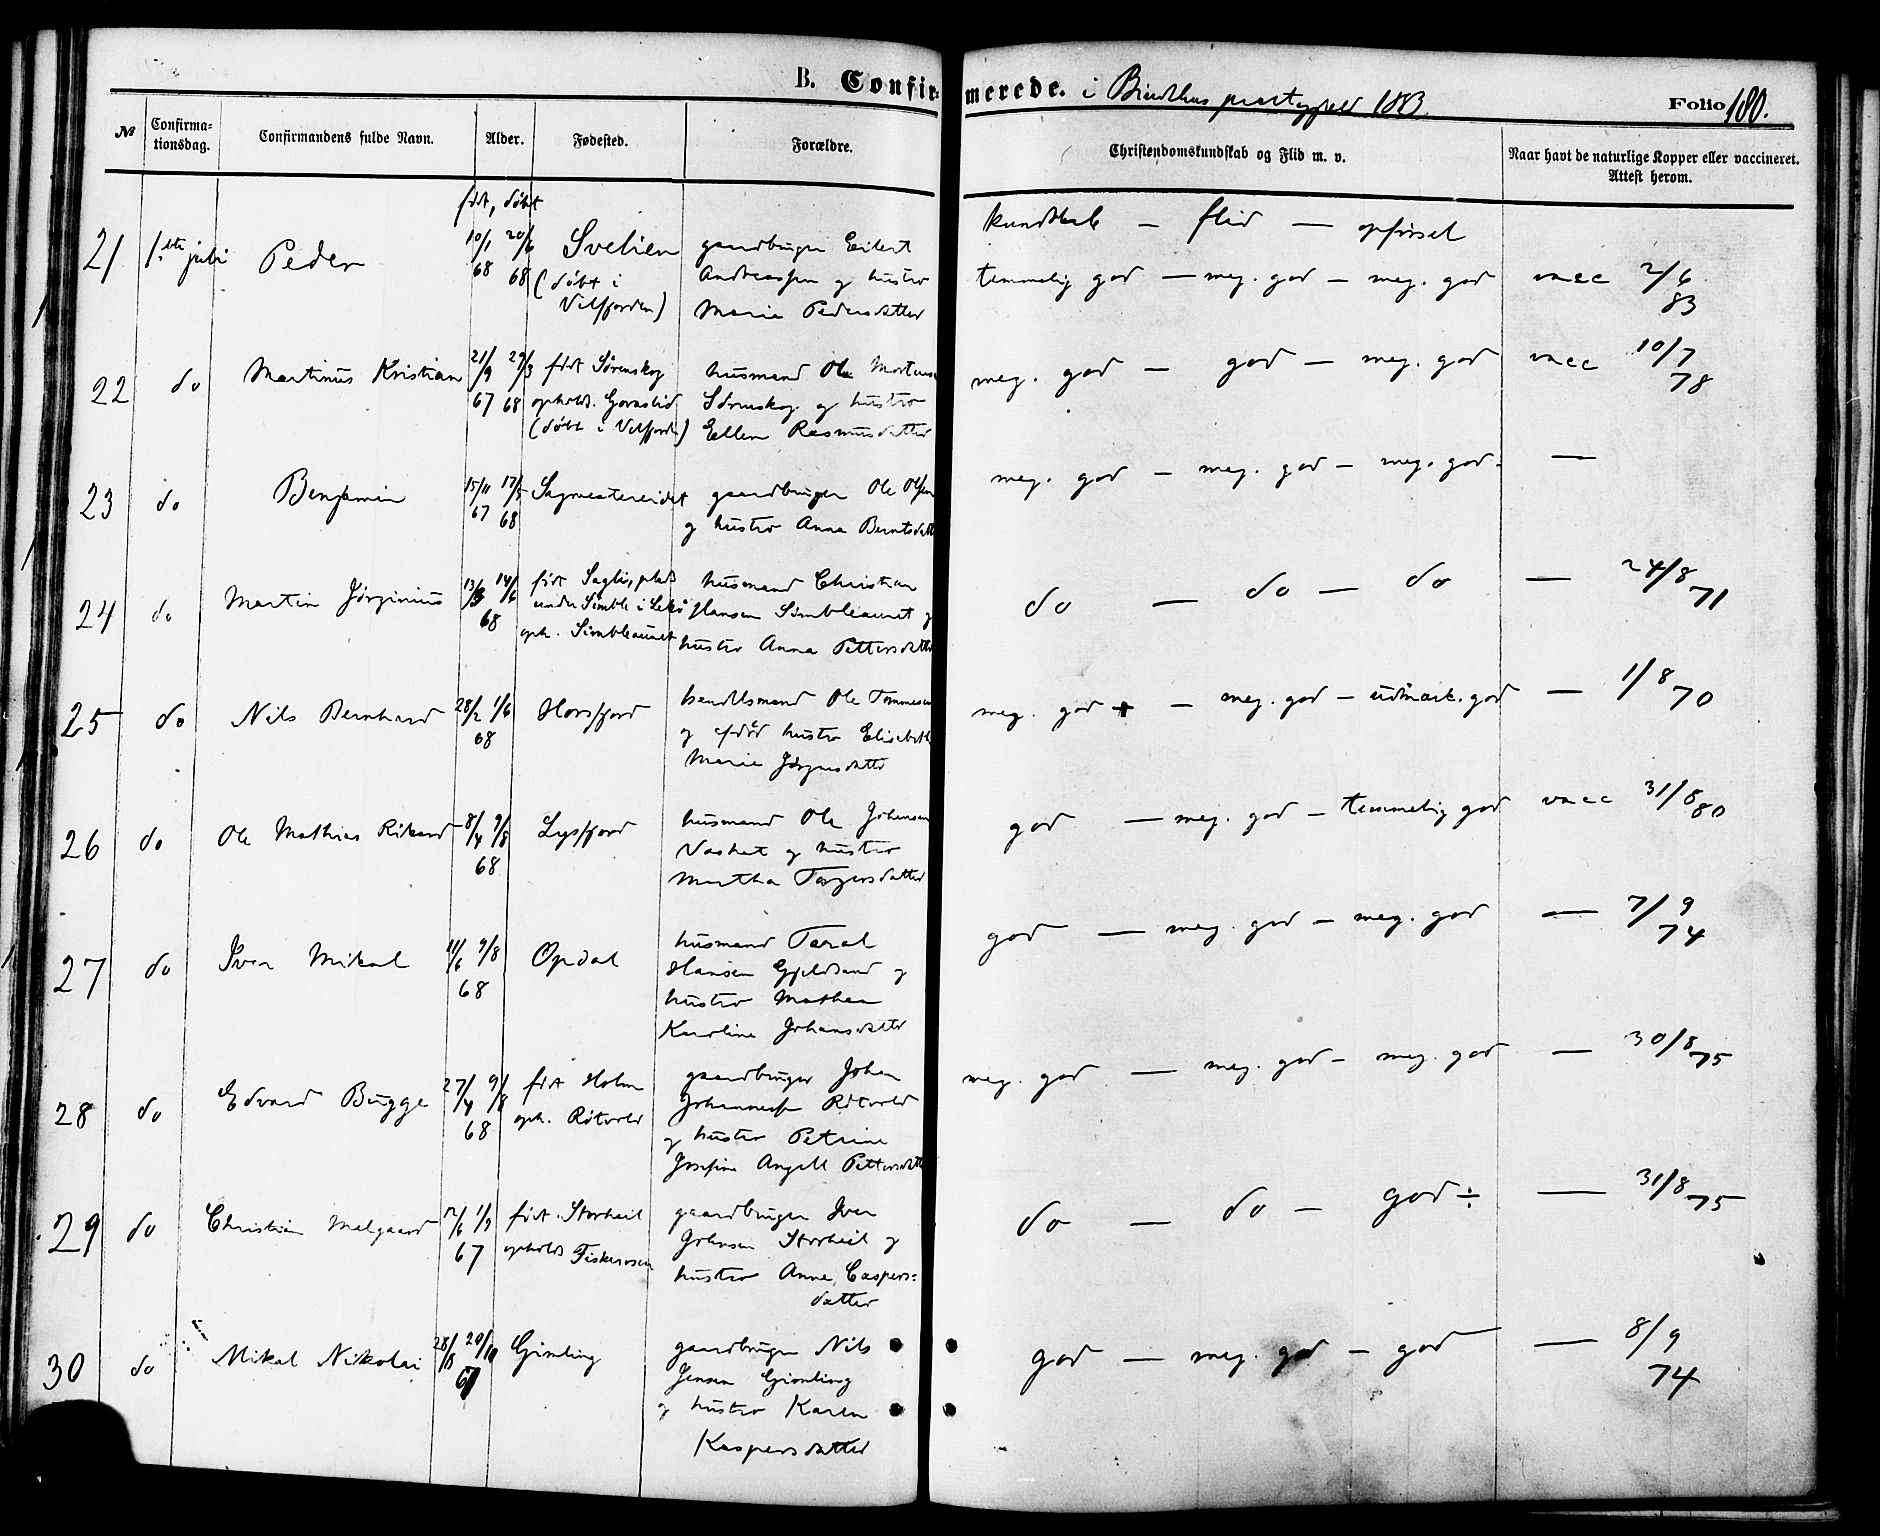 B. Confirmerede. i Bindalens prestegjeld 1883. Folio 180.
№ Confirmationsdag. Confirmandens fulde Navn. Alder. Fødested. Forældre. Christendomskundskab og Flid m. v. Naar havt de naturlige Kopper eller vaccineret. Attest herom.
født, døbt
kundskab — flid — opførsel
21 1ste juli Peder 10/1 68 20/6 68 Svelien
(døbt i
Velfjorden)
gaardbruger Eilert
Andreassen og hustro
Marie Pedersdatter
temmelig god — meg. god — meg. god vacc 2/6 83
22 do Martinus Kristian 21/9 67 29/3 68 født Sørenskog
ophold. Gaaslid
(døbt i Velfjorden)
husmand Ole Mortens
Sørenskog og hustro
Ellen Rasmusdatter
meg. god — god — meg. god vacc 10/7 78
23 do Benjamin 15/11 67 17/5 68 Sagmestereidet
gaardbruger Ole Olsen
og hustro Anna Berntsdatter
meg. god — meg. god — meg. god. —
24 do Martin Jørginius 13/3 14/6 68 født Saglis, plads
under Simble i Lekø
oph. Simbleaunet
husmand Christian
Hansen Simbleaunet og
hustro Anna Pettersdatter
do — do — do — 24/8 71
25 do Nils Bernhard 28/2 1/6 68 Horsfjord
handelsmand Ole Tommesen
og afdød hustro Elisabeth
Marie Jørgensdatter
meg. god + — meg. god — udmærk. god — 1/8 70
26 do Ole Mathias Rikard 8/4 9/8 68 Lysfjord
husmand Ole Johansen
Vashat og hustro
Martha Torgersdatter
god — meg. god — temmelig god vacc 31/8 80
27 do Iver Mikal 11/6 9/8 68 Opdal
husmand Taral
Hansen Gjeldsand og
hustro Mathea
Karoline Johansdatter
god — meg. god — meg. god — 7/9 74
28 do Edvard Bugge 27/4 9/8 68 født Holm
oph. Røtvold
gaardbruger Johan
Johannessen Røtvold
og hustro Petrine
Josefine Angell Pettersdatter
meg. god — meg. god — meg. god — 30/8 75
29 do Christian Melgaard 12/6 1/9 67 født Storheil
ophold Fiskerosen
gaardbruger Iver
Johnsen Storheil og
hustro Anne Caspers=
datter
do — do — god ÷ — 31/8 75
30 do Mikal Nikolai 28/8 20/10 67 Gimling
gaardbruger Nils
Jensen Gimling
og hustro Karen
Kaspersdatter
god — meg. god — god — 8/9 74